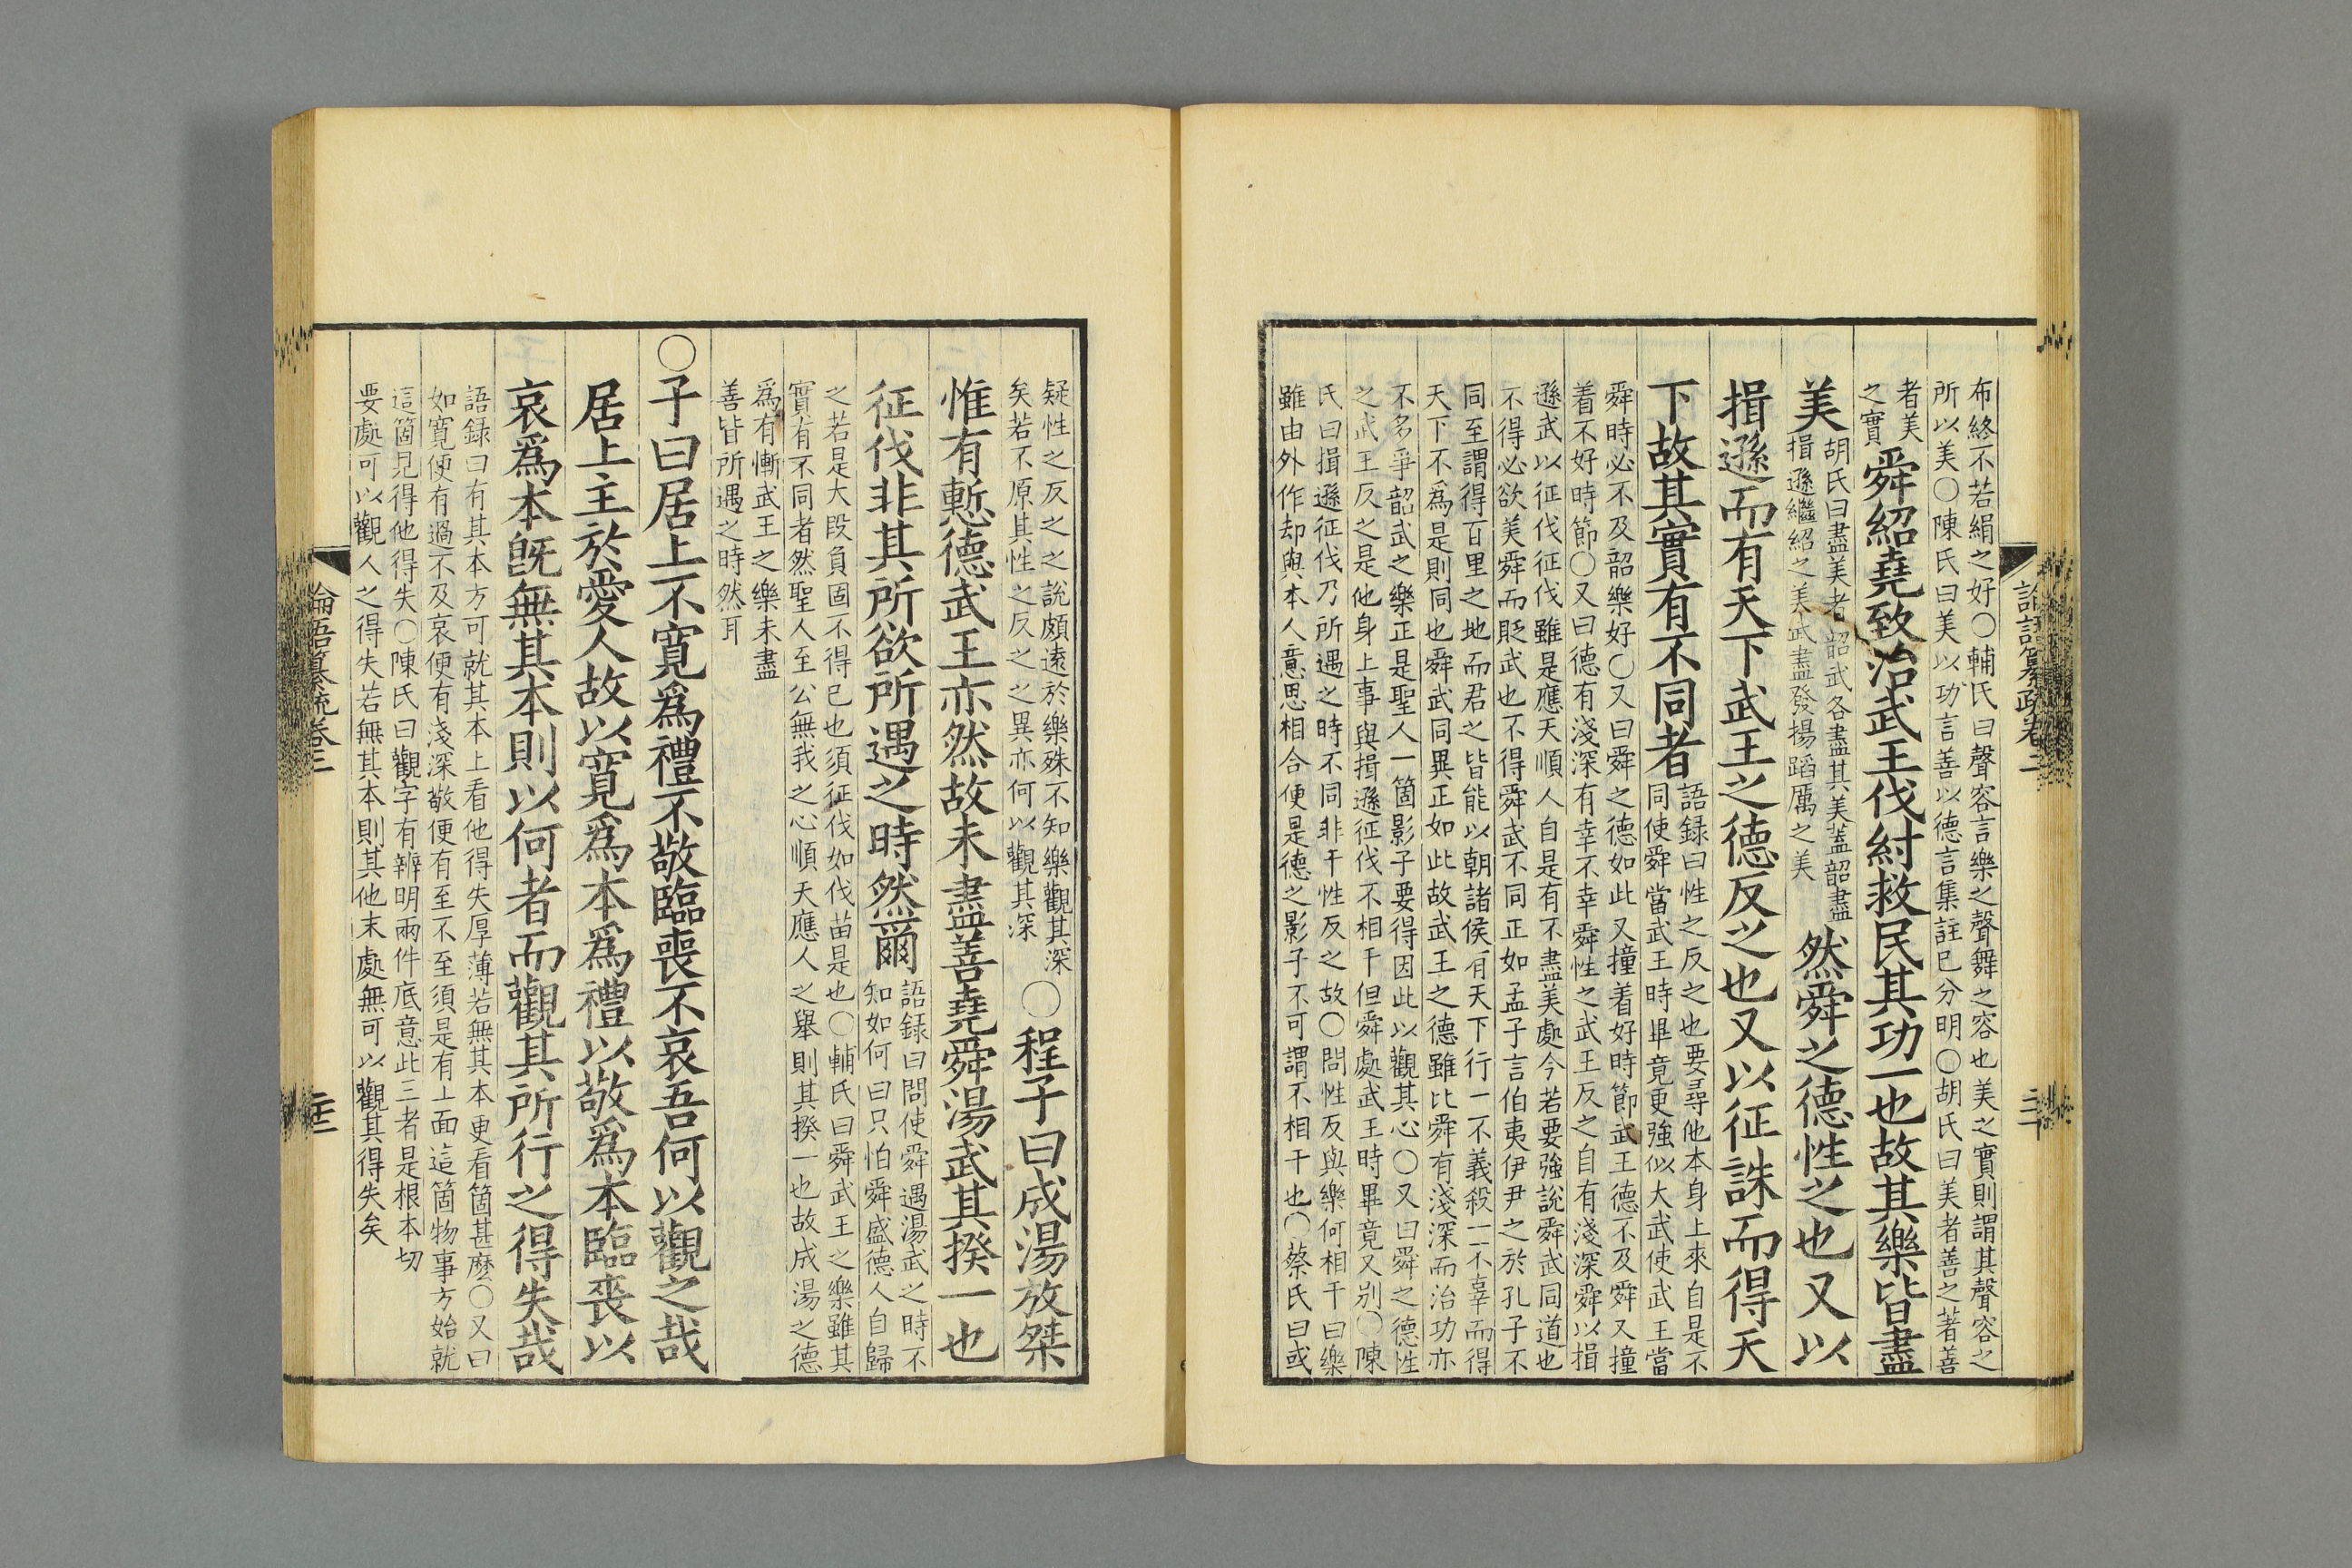 布終不若絹之好〇輔氏曰聲容言樂之聲舞之容也美之實則謂其聲容之
所以美〇陳氏曰美以功言善以德言集註已分明〇胡氏曰美者善之著善
者美
之實
舜紹堯致治武王伐紂救民其功一也故其樂皆盡
美
胡氏曰盡美者韶武各盡其美蓋韶盡
揖遜繼紹之美武盡發揚蹈厲之美
然舜之德性之也又以
揖遜而有天下武王之德反之也又以征誅而得天
下故其實有不同者
語録曰性之反之也要尋他本身上來自是不
同使舜當武王時畢竟更強似大武使武王當
舜時必不及韶樂好〇又曰舜之德如此又撞着好時節武王德不及舜又撞
着不好時節〇又曰德有淺深有幸不幸舜性之武王反之自有淺深舜以揖
遜武以征伐征伐雖是應天順人自是有不盡美處今若要強說舜武同道也
不得必欲美舜而貶武也不得舜武不同正如孟子言伯夷伊尹之於孔子不
同至謂得百里之地而君之皆能以朝諸侯有天下行一不義殺一不辜而得
天下不爲是則同也舜武同異正如此故武王之德雖比舜有淺深而治功亦
不多爭韶武之樂正是聖人一箇影子要得因此以觀其心〇又曰舜之德性
之武王反之是他身上事與揖遜征伐不相干但舜處武王時畢竟又别〇陳
氏曰揖遜征伐乃所遇之時不同非干性反之故〇問性反與樂何相干曰樂
雖由外作却與本人意思相合便是德之影子不可謂不相干也〇蔡氏曰或
疑性之反之之說頗遠於樂殊不知樂觀其深
矣若不原其性之反之之異亦何以觀其深
〇程子曰成湯放桀
惟有慙德武王亦然故未盡善堯舜湯武其揆一也
征伐非其所欲所遇之時然爾
語録曰問使舜遇湯武之時不
知如何曰只怕舜盛德人自歸
之若是大段負固不得已也須征伐如伐苗是也〇輔氏曰舜武王之樂雖其
實有不同者然聖人至公無我之心順天應人之舉則其揆一也故成湯之德
爲有慚武王之樂未盡
善皆所遇之時然耳
〇子曰居上不寛爲禮不敬臨喪不哀吾何以觀之哉
居上主於愛人故以寛爲本爲禮以敬爲本臨喪以
哀爲本旣無其本則以何者而觀其所行之得失哉
語録曰有其本方可就其本上看他得失厚薄若無其本更看箇甚麽〇又曰
如寛便有過不及哀便有淺深敬便有至不至須是有上面這箇物事方始就
這箇見得他得失〇陳氏曰觀字有辨明兩件底意此三者是根本切
要處可以觀人之得失若無其本則其他末處無可以觀其得失矣
論語纂疏卷二